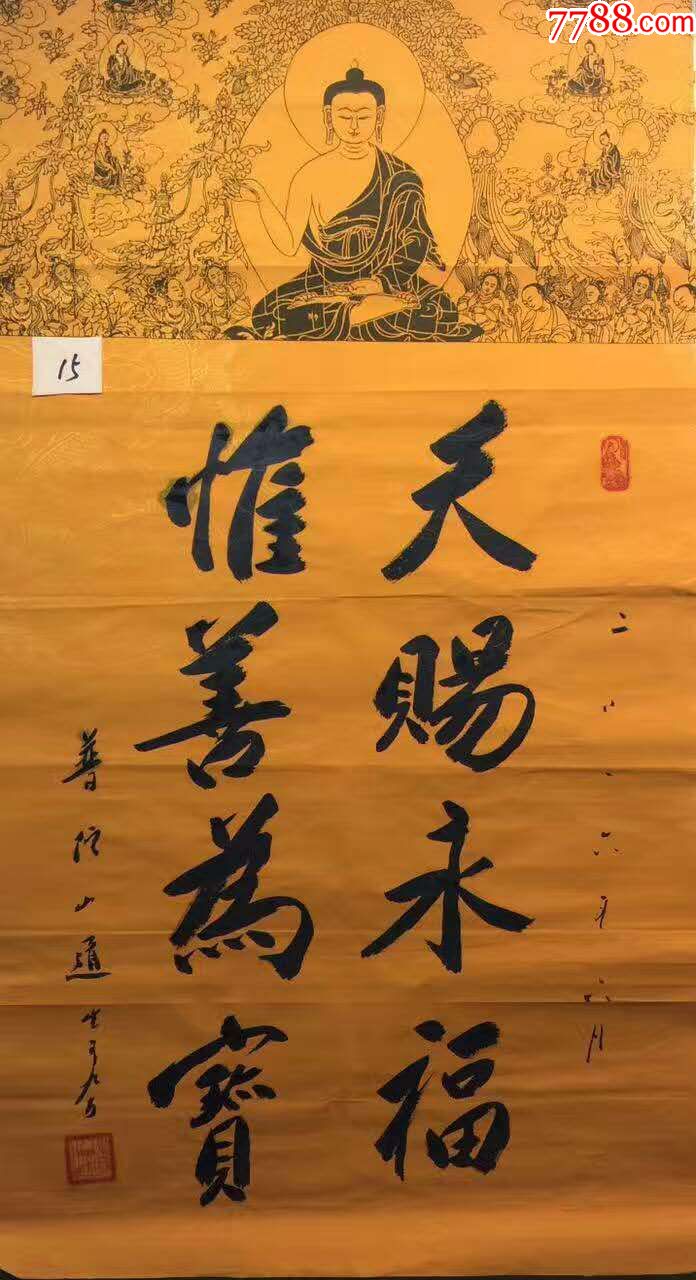 7788.com
15
天賜永福
惟善為寶
二〇〇六年六月
普陀山道生